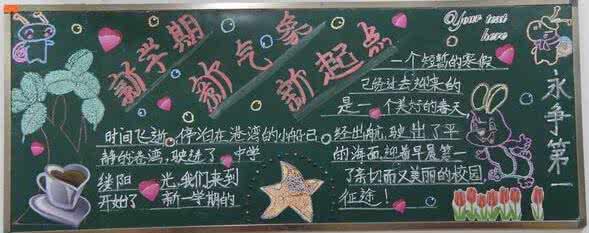 新学期
新气象
新起点
Your text
here
一个短暂的寒假
已经过去迎来的
是一个美好的春天
时间飞逝,停泊在港湾的小船已经出航,驶出了平
静的港湾,驶进了中学的海面,迎着早晨第一
缕阳光,我们来到了亲切而又美丽的校园,
开始了新一学期的征途!
永争第一